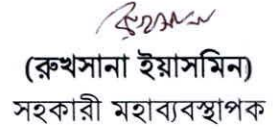 (রুখসানা ইয়াসমিন)
সহকারী মহাব্যবস্থাপক